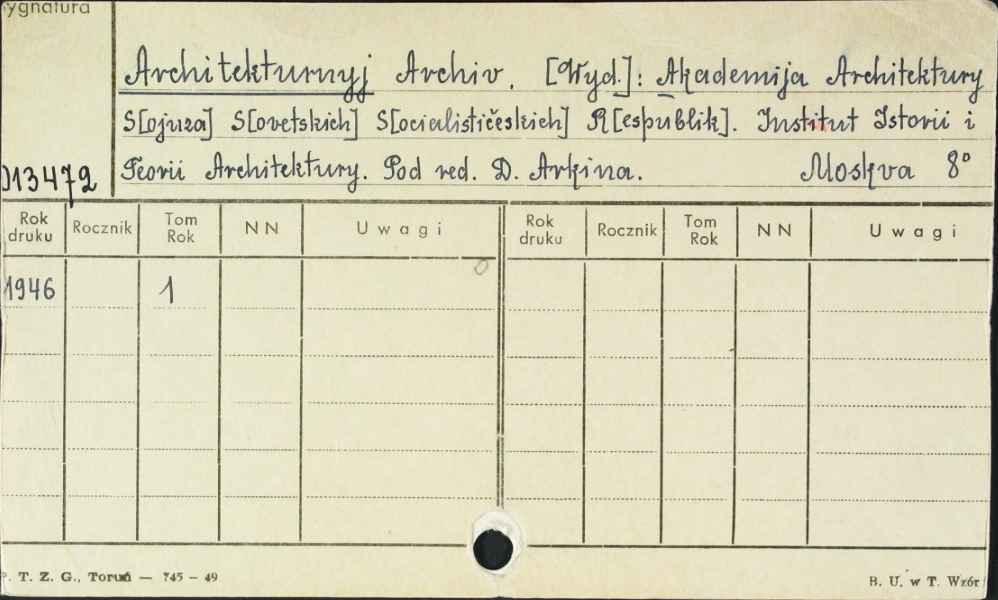 ygnatura
Architekturnyj Archiv. [Wyd.]: Akademija Architektury
S[ojuza] S[ovetskich] S[ocialističeskich] R[espublik]. Institut Istorii i
013472 Teorii Architektury. Pod red. D. Arkina. Moskva 8°
Rok druku Rocznik Tom Rok NN Uwagi Rok druku Rocznik Tom Rok NN Uwagi
1946 1
P. T. Z. G., Toruń — 745 – 49 B. U. w T. Wzór